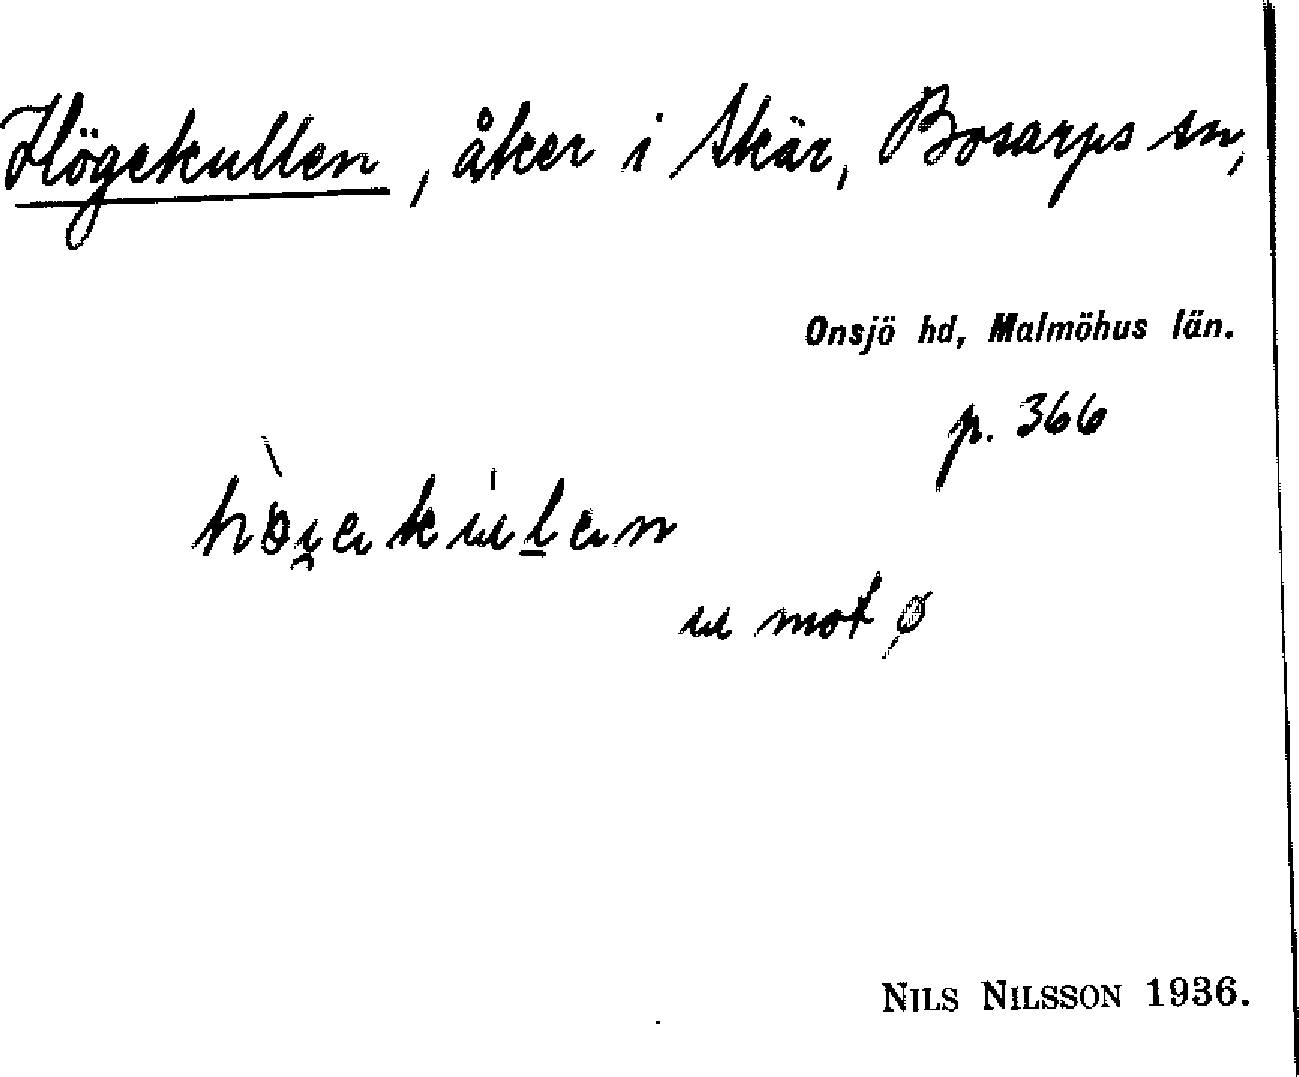 Högekullen, åker i Skär, Bosarps sn,
Onsjö hd, Malmöhus län.
p. 366
u mot ø
NILS NILSSON 1936.